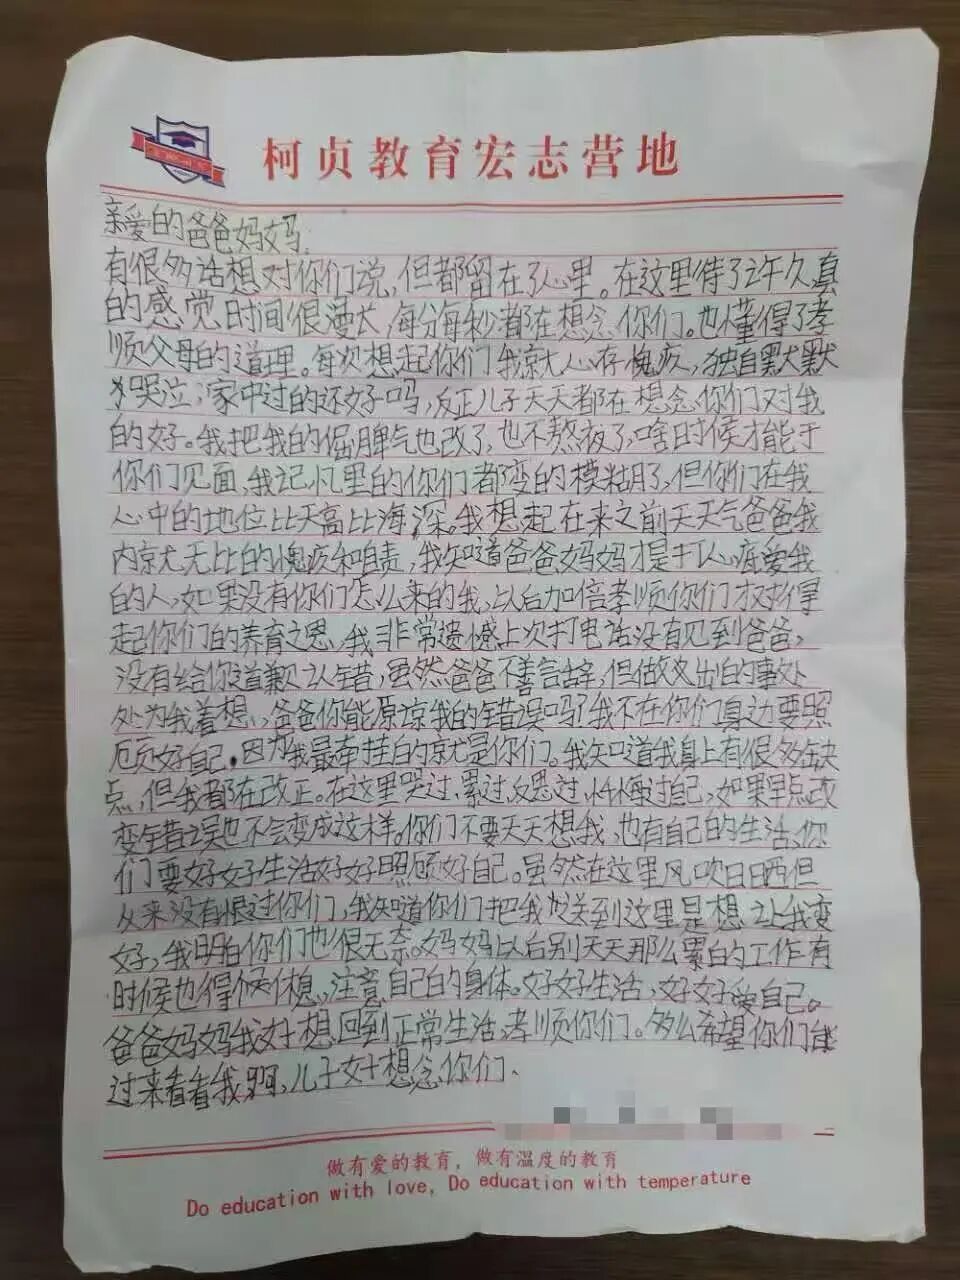 柯贞教育宏志营地
亲爱的爸爸妈妈:
有很多话想对你们说,但都留在了心里。在这里待了许久,真
的感觉时间很漫长,每分每秒都在想念你们。也懂得了孝
顺父母的道理。每次想起你们我就心存愧疚,独自默默
哭泣,家中过的还好吗,反正儿子天天都在想念你们对我
的好。我把我的倔脾气也改了,也不熬夜了,啥时候才能于
你们见面,我记忆里的你们都变的模糊了,但你们在我
心中的地位比天高比海深。我想起在来之前天天气爸爸我
内就无比的愧疚和自责,我知道爸爸妈妈才是打心疼爱我
的人,如果没有你们怎么来的我,以后加倍孝顺你们才对得
起你们的养育之恩,我非常遗憾上次打电话没有见到爸爸,
没有给你道歉认错,虽然爸爸不善言辞,但做出的事处
处为我着想,爸爸你能原谅我的错误吗?我不在你们身边要照
顾好自己.因为我最牵挂的就是你们。我知道我身上有很多缺
点,但我都在改正。在这里哭过、累过、反思过、忏悔过自己,如果早点改
变错误也不会变成这样。你们不要天天想我,也有自己的生活、你
们要好好生活好好照顾好自己。虽然在这里风吹日晒但
从来没有恨过你们,我知道你们把我送到这里是想让我变
好,我明白你们也很无奈。妈妈以后别天天那么累的工作有
时候也得休息,注意自己的身体。好好生活,好好爱自己。
爸爸妈妈我好想回到正常生活,孝顺你们。多么希望你们能
过来看看我啊,儿子好想念你们、
做有爱的教育,做有温度的教育
Do education with love, Do education with temperature